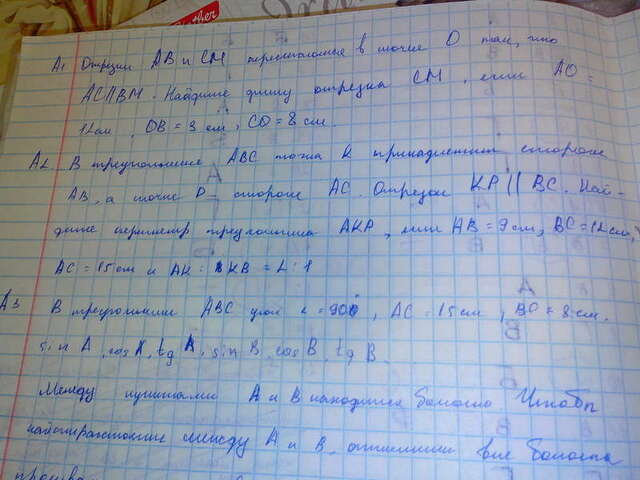 А1 Отрезки АВ и СМ пересекаются в точке О так, что
АС||ВМ. Найдите длину отрезка СМ, если АО =
12см, ОВ = 3 см, СО = 8 см.
А2 В треугольнике АВС точка К принадлежит стороне
АВ, а точка Р стороне АС. Отрезок КР || ВС. Най-
дите периметр треугольника АКР, если АВ = 9 см, ВС = 12 см,
АС = 15 см и АК : КВ = 2 : 1
А3 В треугольнике АВС угол с = 90, АС = 15 см, ВС = 8 см.
sin A, cos A, tg A, sin B, cos B, tg B.
Между пунктами А и В находится болото. Чтобы
найти расстояние между А и В, отметили вне болота